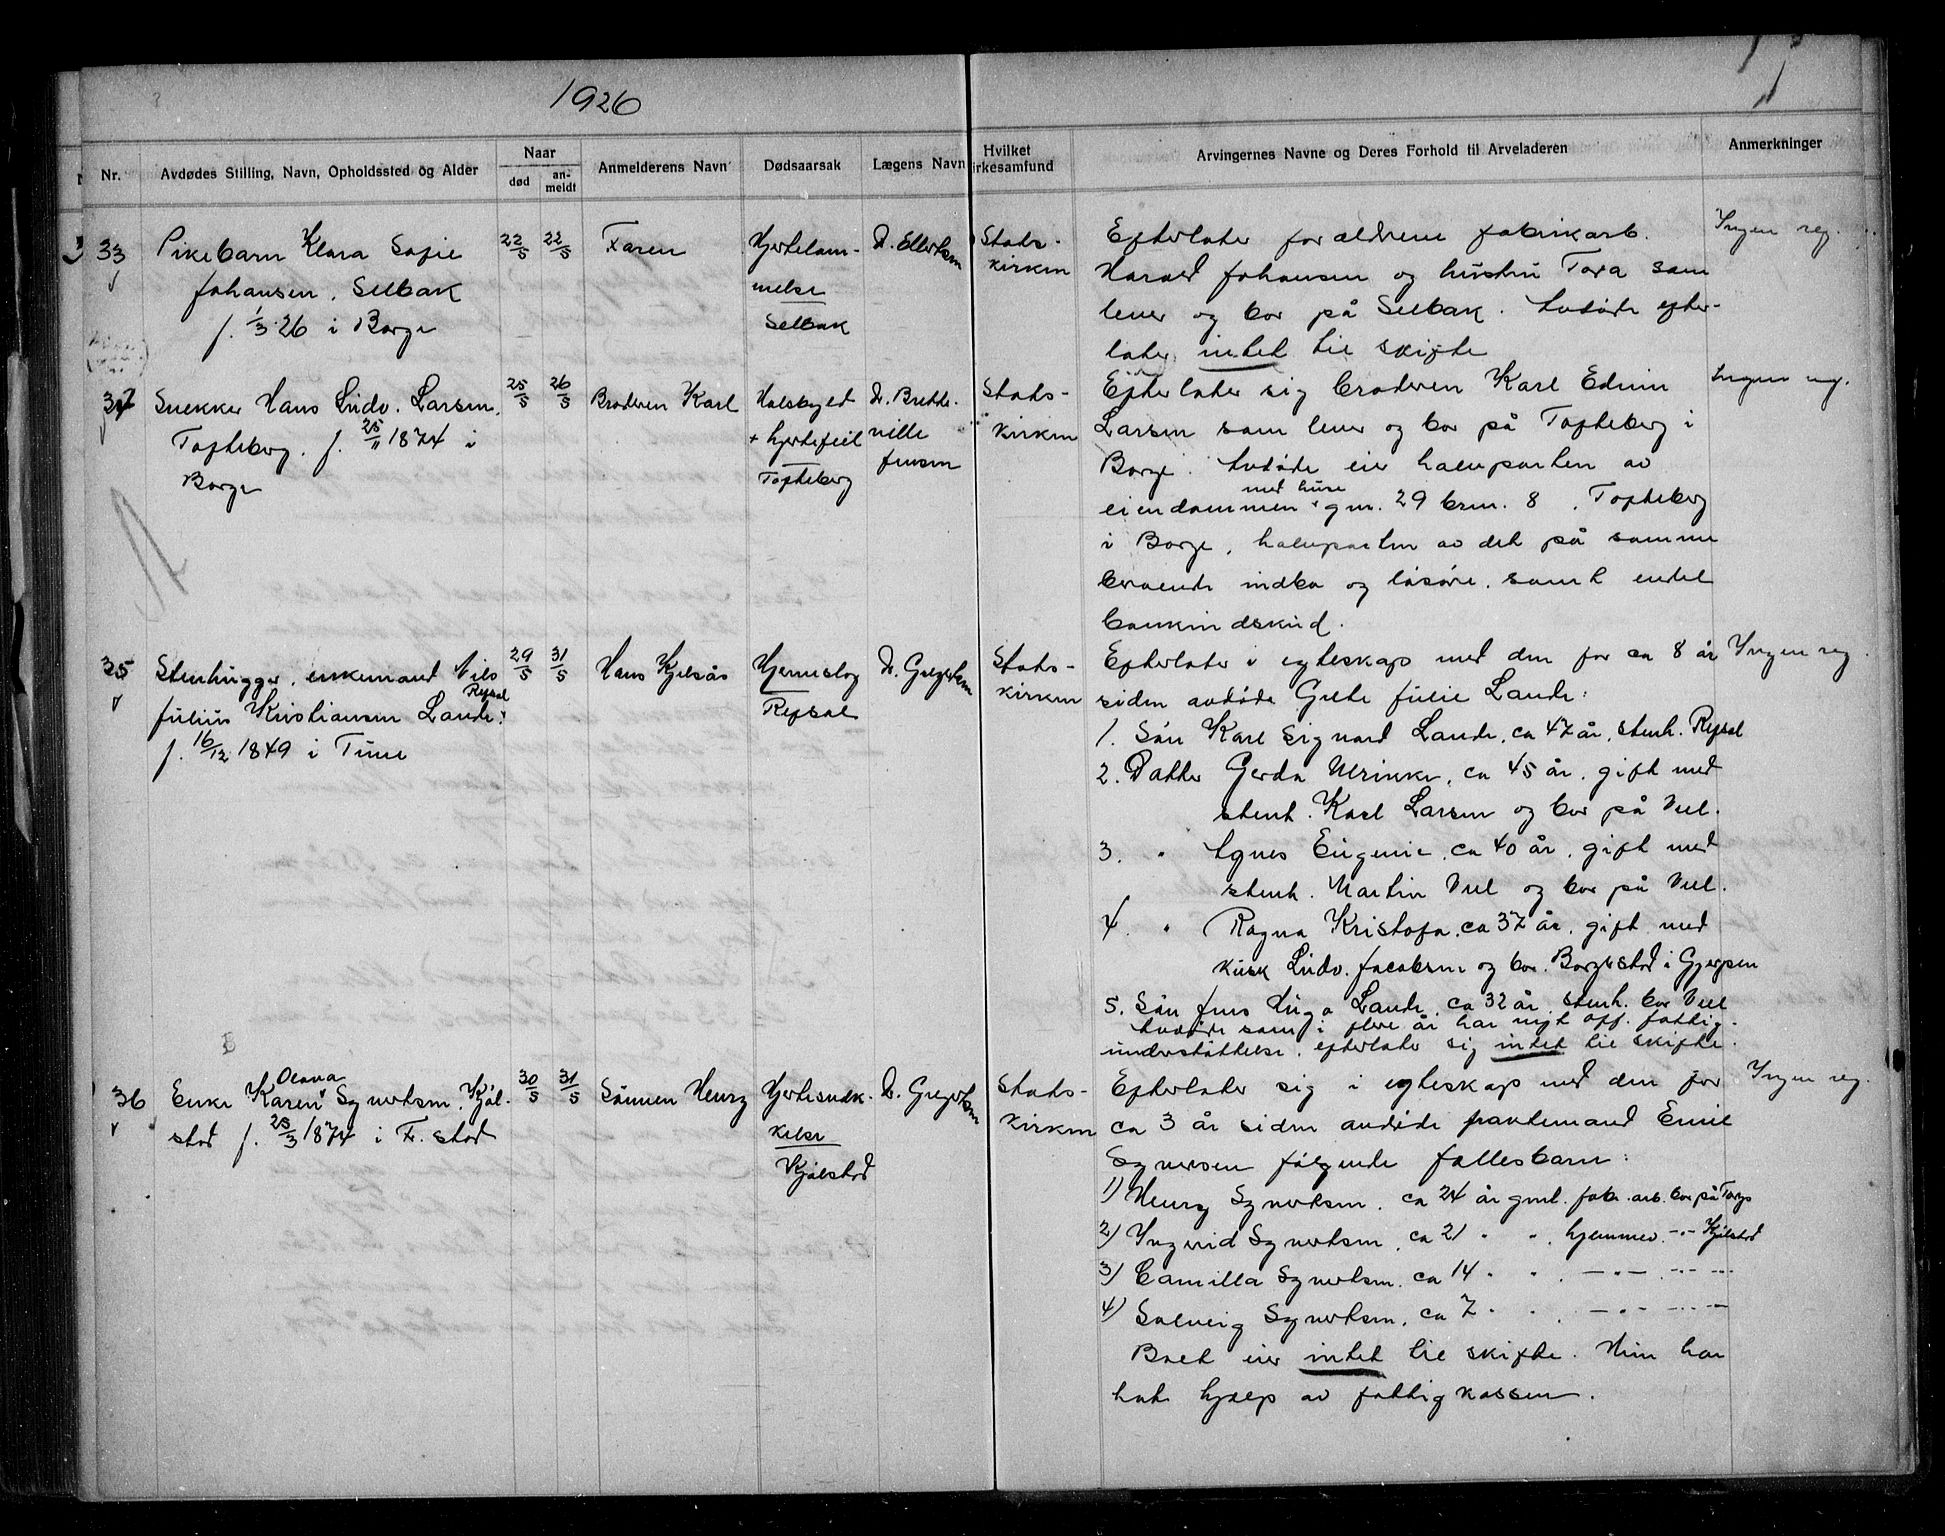 1926
Nr.
Avdødes Stilling, Navn, Opholdssted og Alder
Naar
død
an-
meldt
Anmelderens Navn
Dødsaarsak
Lægens Navn
Hvilket
irkesamfund
Arvingernes Navne og Deres Forhold til Arveladeren
Anmerkninger
33
Pikebarn Klara Sofie
Johansen, Selbak
f. 1/3 26 i Borge
22/5
22/5
Faren
Hjertelam-
melse
Selbak
D. Ellertsen
Stats-
kirken
Efterlater forældrene fabrikarb.
Harald Johansen og hustru Tora som
lever og bor på Selbak. Avdøde efter-
later intet til skifte
Ingen reg.
34
Snekker Hans Ludv. Larsen,
Tofteberg. f. 25/11 1874 i
Borge
25/5
26/5
Broderen Karl
Halsbyld
+ hjertefeil
Tofteberg
D. Brette-
ville
Jensen
Stats-
kirken
Efterlater sig broderen Karl Edvin
Larsen som lever og bor på Tofteberg i
Borge. Avdøde eier halvparten av
med huse
eiendommen gnr. 29 brn. 8, Tofteberg
i Borge, halvparten av det på samme
beroende indbo og løsøre, samt endel
bankindskud.
Ingen reg.
35
Stenhugger, enkemand Nils
Refsal
Julius Kristiansen Lande,
f. 16/12 1849 i Tune
29/5
31/5
Hans Kjelsås
Hjerneslag
Refsal
D. Gregertsen
Stats-
kirken
Efterlater i egteskap med den for ca 8 år
siden avdøde Grete Julie Lande:
1. Søn Karl Sigvard Lande, ca 47 år, stenh. Refsal
2. Datter Gerda Ulrikke, ca 45 år, gift med
stenh. Karl Larsen og bor på Vel.
3. " Agnes Eugenie, ca 40 år, gift med
stenh. Martin Vel og bor på Vel.
4. " Ragna Kristofa, ca 37 år, gift med
kusk Ludv. Jacobsen og bor Borgestad i Gjerpen
5. Søn Jens Hugo Lande, ca 32 år, stenh. bor Vel
Avdøde som i flere år har nyt off. fattig-
understøttelse, efterlater sig intet til skifte.
Ingen reg.
36
Olava
Enke Karen Syvertsen, Kjøl-
stad f. 25/3 1874 i F. stad
30/5
31/5
Sønnen Henry
Hjertesvæk-
kelse
Kjølstad
D. Gregertsen
Stats-
kirken
Efterlater sig i egteskap med den for
ca 3 år siden avdøde pantemand Emil
Syversen følgende fællesbarn:
1) Henry Syvertsen, ca 24 år gml. fab. arb. bor på Torp
2) Ingrid Syvertsen, ca 21 " " , hjemmev. -"- Kjølstad
3) Camilla Syvertsen, ca 14 " " , -"- -"- -"-
4) Solveig Syvertsen, ca 7 " " , -"- -"- -"-
Boet eier intet til skifte. Hun har
hat hjælp av fattigkassen.
Ingen reg.